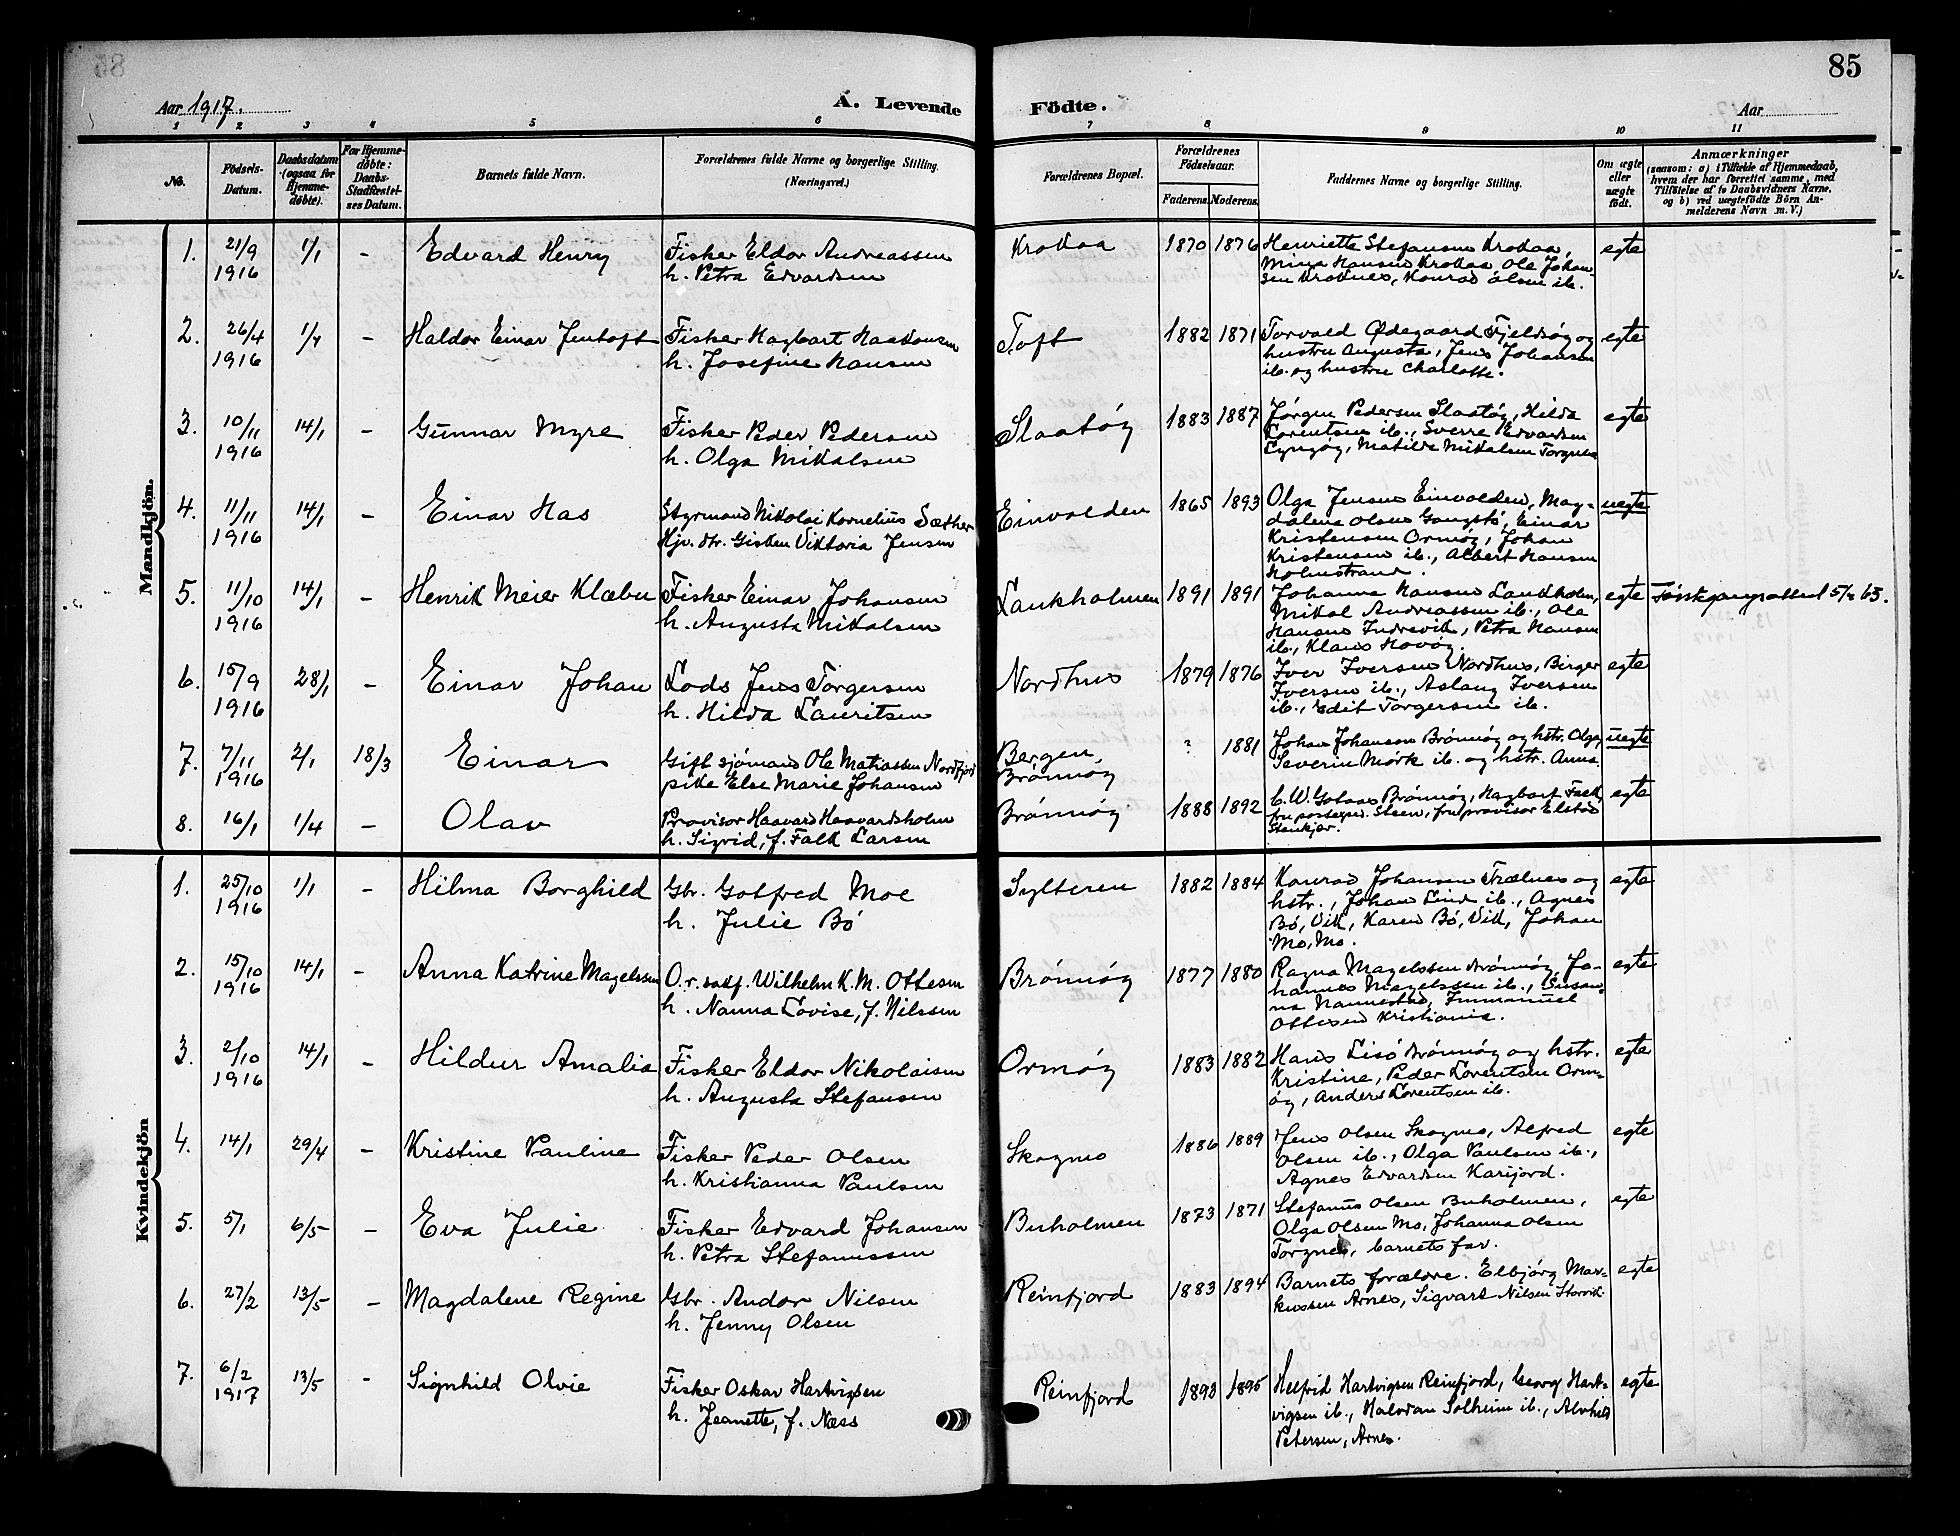 85
Aar 1917.
A. Levende
Födte.
Aar
1 2 3 4 5 6 7 8 9 10 11
No.
Födsels-
Datum.
Daabsdatum
(ogsaa for
Hjemme-
döbte).
For Hjemme-
døbte:
Daabs-
Stadfæstel-
ses Datum.
Barnets fulde Navn.
Forældrenes fulde Navne og borgerlige Stilling.
(Næringsvei.)
Forældrenes Bopæl.
Forældrenes
Födselsaar.
Faderens. Moderens.
Faddernes Navne og borgerlige Stilling.
Om ægte
eller
uægte
födt.
Anmærkninger
(saasom: a) i Tilfælde af Hjemmedaab,
hvem der har forrettet samme, med
Tilföielse af to Daabsvidners Navne,
og b) ved uægtefödte Börn An-
melderens Navn m. V.)
Mandkjön.
1. 21/9 1/1 - Edvard Henry Fisker Eldor Andreassen Krokaa 1870 1876 Henriette Stefansen Krokaa, egte
1916 h. Petra Edvardsen Mina Hansen Krokaa, Ole Johan-
sen Kroknes, Konrad Olsen ib.
2. 26/4 1/1 - Haldor Einar Jentoft Fisker Hagbart Haakonsen Toft 1882 1871 Torvald Ødegaard Fjeldsøy og egte
1916 h. Josefine Hansen hustru Augusta, Jens Johansen
ib. og hustru Charlotte.
3. 10/11 14/1 - Gunnar Myre Fisker Peder Pedersen Slaatøy 1883 1887 Jørgen Pedersen Slaatøy, Hilda egte
1916 h. Olga Mikalsen Lorentsen ib., Sverre Edvardsen
Lyngøy, Matilde Mikalsen Torgnes
4. 11/11 14/1 - Einar Has Styrmand Nikolai Kornelius Sæther Einvolden 1865 1893 Olga Jensen Einvolden, Mag- uegte
1916 Hjv. dtr. Gisken Viktoria Jensen dalena Olsen Gangstø, Einar
Kristensen Ormøy, Johan
Kristensen ib., Albert Hansen
Holmstrand.
5. 11/10 14/1 - Henrik Meier Klæbu Fisker Einar Johansen Laukholmen 1891 1891 Johanna Hansen Laukholm, egte 5/2 63.
1916 h. Augusta Mikalsen Mikal Andreassen ib., Ole
Hansen Indrevik, Petra Hansen
ib., Klaus Havøy.
6. 15/9 28/1 - Einar Johan Lods Jens Torgersen Nordhus 1879 1876 Iver Iversen Nordhus, Birger egte
1916 h. Hilda Lauritsen Iversen ib., Aslaug Iversen
ib., Edit Torgersen ib.
7. 7/11 2/1 18/3 Einar Gift sjømand Ole Matiassen Nordfjord Bergen, ? 1881 Johan Johansen Brønnøy og hstr. Olga, uegte
1916 pike Else Marie Johansen Brønnøy Severin Mørk ib. og hstr. Anna.
8. 16/1 1/4 - Olav Provisor Haavard Haavardsholm Brønnøy 1888 1892 C. W. Brønnøy, Hagbart Falk, egte
h. Sigrid, f. Falk Larsen fru postexped. Steen, fru provisor
Stenkjær.
Kvindekjön
1. 25/10 1/1 - Hilma Borghild Gbr. Gotfred Moe Sylteren 1882 1884 Konrad Johansen Trælnes og egte
1916 h. Julie Bø hstr., Johan Lind ib., Agnes
Bø, Vik, Karen Bø, Vik, Johan
Mo, Mo.
2. 15/10 14/1 - Anna Katrine Magelssen O.r. sakf. Wilhelm K. M. Ottesen Brønnøy 1877 1880 Ragna Magelssen Brønnøy, Jo- egte
1916 h. Nanna Lovise, f. Nilssen hannes Magelssen ib., Susan-
na Nannestad, Immanuel
Ottesen Kristiania.
3. 2/10 14/1 - Hildur Amalia Fisker Eldor Nikolaisen Ormøy 1883 1882 Hans Lisø Brønnøy og hstr. egte
1916 h. Augusta Stefansen Kristine, Peder Lorentsen Orm-
øy, Anders Lorentsen ib.
4. 14/1 29/4 - Kristine Pauline Fisker Peder Olsen Skogmo 1886 1889 Jens Olsen Skogmo, Alfred egte
h. Kristianna Paulsen Olsen ib., Olga Paulsen ib.,
Agnes Edvardsen Karijord.
5. 5/1 6/5 - Eva Julie Fisker Edvard Johansen Buholmen 1873 1871 Stefanus Olsen Buholmen, egte
h. Petra Stefanussen Olga Olsen Mo, Johanna Olsen
Torgnes, barnets far.
6. 27/2 13/5 - Magdalene Regine Gbr. Andor Nilsen Reinfjord 1883 1894 Barnets forældre. Elbjørg Mar- egte
h. Jenny Olsen kussen Arnes, Sigvart Nilsen Storvik
7. 6/2 13/5 - Signhild Olvie Fisker Oskar Hartvigsen Reinfjord 1893 1895 Helfrid Hartvigsen Reinfjord, Georg Hart- egte
1917 h. Jeanette, f. Næss vigsen ib., Halvdan Solheim ib., Alvhild
Petersen, Arnes.